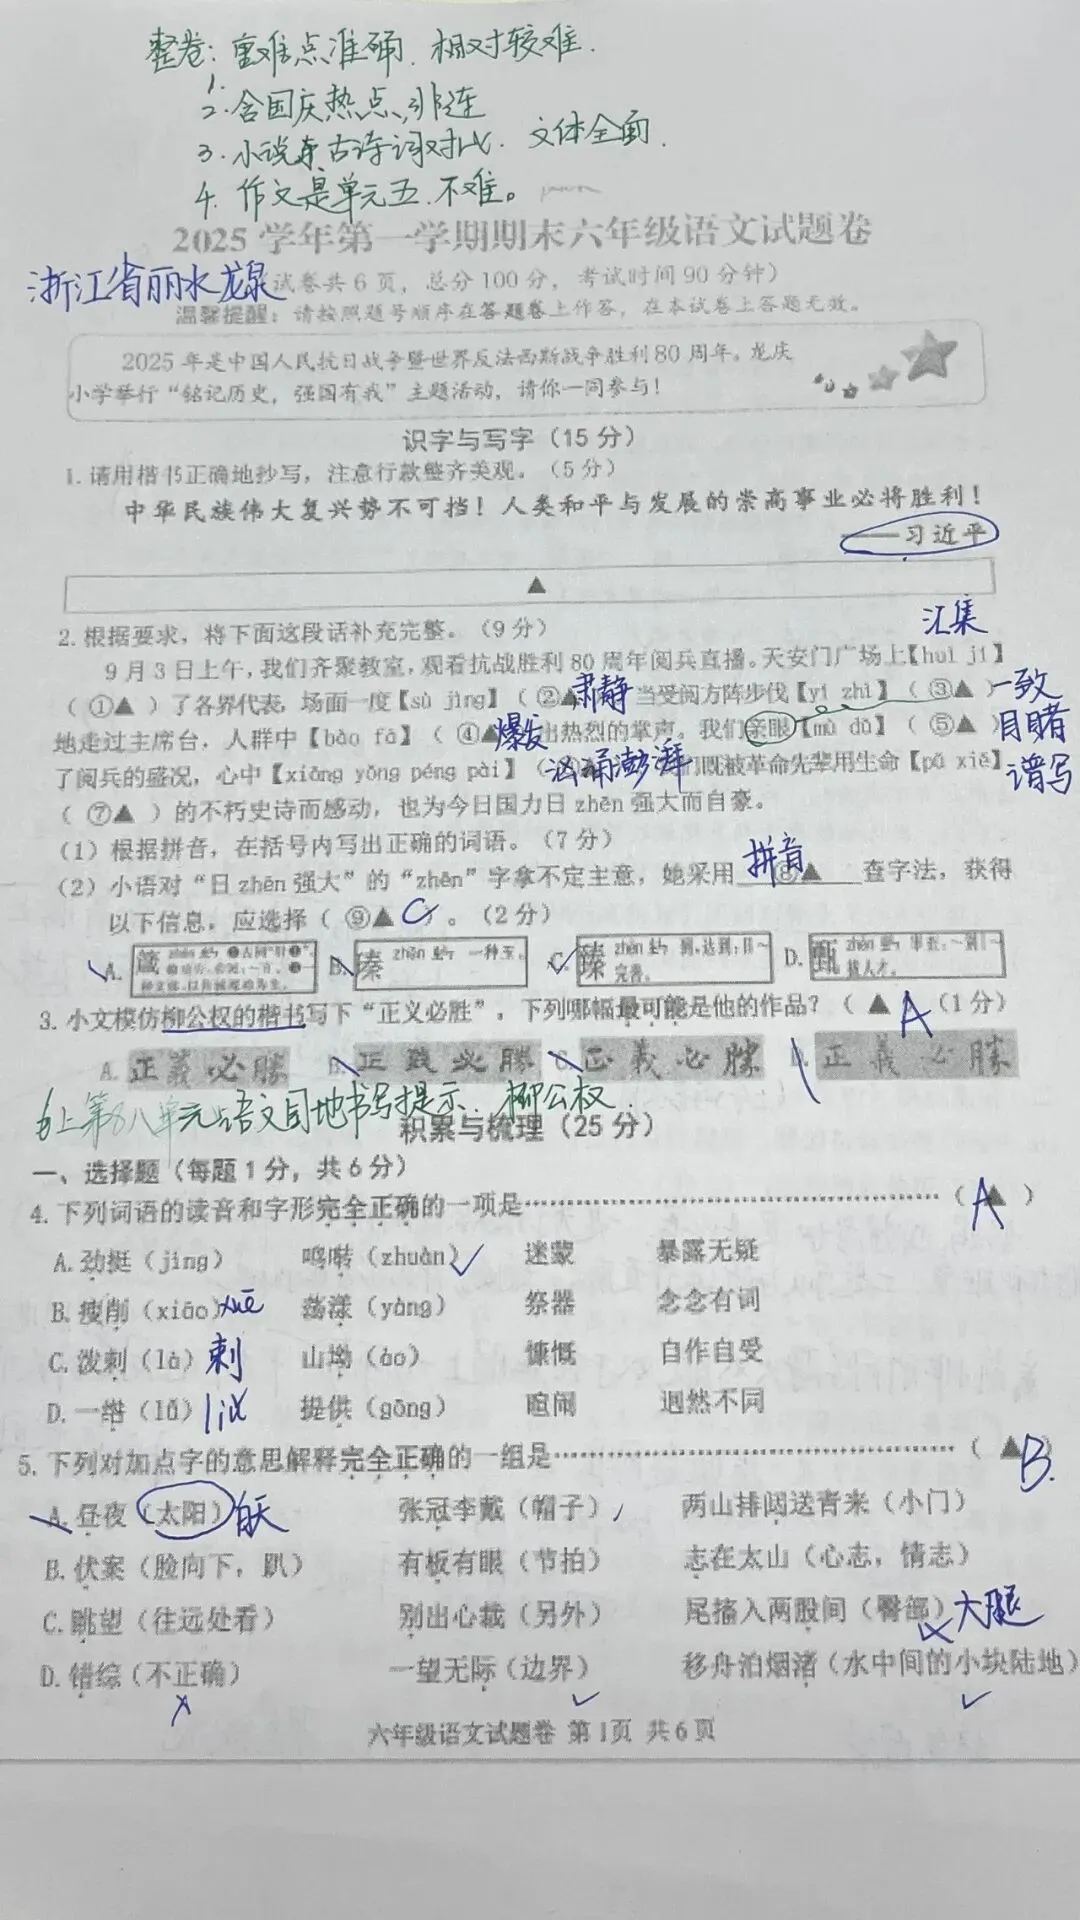 整卷:重难点准确.相对较难.
1.
2.含国庆热点、非连
3.小说 古诗词对比.文体全面.
4.作文是单元五.不难。
2025 学年第一学期期末六年级语文试题卷
浙江省丽水龙泉
试卷共 6 页，总分 100 分，考试时间 90 分钟）
温馨提醒：请按照题号顺序在答题卷上作答，在本试卷上答题无效。
2025 年是中国人民抗日战争暨世界反法西斯战争胜利 80 周年。龙庆
小学举行“铭记历史，强国有我”主题活动，请你一同参与！
识字与写字（15 分）
1.请用楷书正确地抄写，注意行款整齐美观。（5 分）
中华民族伟大复兴势不可挡！人类和平与发展的崇高事业必将胜利！
——习近平
▲
2.根据要求，将下面这段话补充完整。（9 分）
汇集
9 月 3 日上午，我们齐聚教室，观看抗战胜利 80 周年阅兵直播。天安门广场上【huì jí】
（ ①▲ ）了各界代表，场面一度【sù jìng】（ ②▲ 肃静 当受阅方阵步伐【yí zhì】（ ③▲ ）一致
地走过主席台，人群中【bào fā】（ ④▲ 爆发 出热烈的掌声。我们亲眼【mù dǔ】（ ⑤▲ ）目睹
了阅兵的盛况，心中【xiōng yǒng péng pài】（ 汹涌澎湃 们既被革命先辈用生命【pǔ xiě】谱写
（ ⑦▲ ）的不朽史诗而感动，也为今日国力日 zhēn 强大而自豪。
（1）根据拼音，在括号内写出正确的词语。（7 分）
（2）小语对“日 zhēn 强大”的“zhēn”字拿不定主意，她采用 拼音 ⑧▲ 查字法，获得
以下信息，应选择（ ⑨▲ C ）。（2 分）
A. 箴 B. 蓁 zhēn ㄓㄣ 一种至。 C. 臻 zhēn ㄓㄣ 到，达到：日～完善。 D. 甄 zhēn ㄓㄣ 审查：～别｜～拔人才。
3.小文模仿柳公权的楷书写下“正义必胜”，下列哪幅最可能是他的作品？（ ▲ A （1 分）
A. 正義必勝 B. 正義必勝 C. 正義必勝 D. 正義必勝
6上第八单元语文园地书写提示.柳公权.
积累与梳理（25 分）
一、选择题（每题 1 分，共 6 分）
4.下列词语的读音和字形完全正确的一项是……………………（ ▲ ） A
A.劲挺（jìng） 鸣啭（zhuàn）✓ 迷蒙 暴露无疑
B.瘦削（xiāo）xuē 荡漾（yàng） 祭器 念念有词
C.泼剌（là）刺 山坳（ào） 慷慨 自作自受
D.一绺（lǚ）liǔ 提供（gōng） 喧闹 迥然不同
5.下列对加点字的意思解释完全正确的一组是……………………（ ▲ ） B.
A.昼夜（太阳）白天 张冠李戴（帽子） 两山排闼送青来（小门）
B.伏案（脸向下，趴） 有板有眼（节拍） 志在太山（心志，情志）
C.眺望（往远处看） 别出心裁（另外） 尾搐入两股间（臀部）× 大腿
D.错综（不正确）× 一望无际（边界）✓ 移舟泊烟渚（水中间的小块陆地）✓
六年级语文试题卷 第 1页 共 6 页